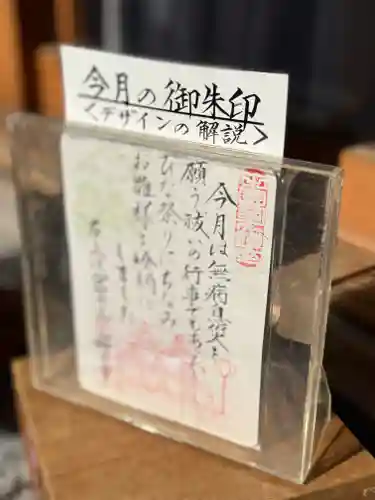 今月の御朱印
<デザインの解説>
今月は無病息災を
願う祓いの行事でもある、
ひな祭りにちなみ
お雛様を
しました